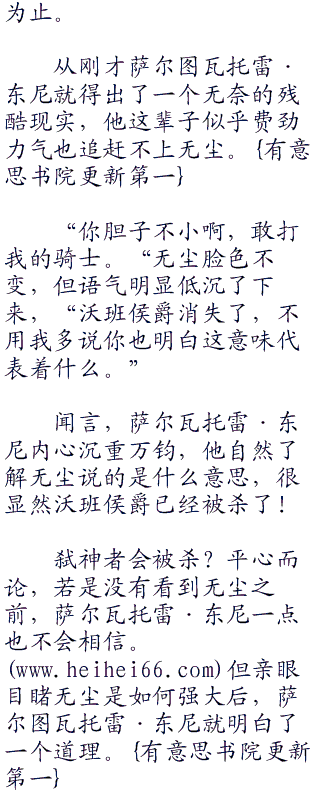 为止。
从刚才萨尔图瓦托雷·
东尼就得出了一个无奈的残
酷现实，他这辈子似乎费劲
力气也追赶不上无尘。{有意
思书院更新第一}
“你胆子不小啊，敢打
我的骑士。“无尘脸色不
变，但语气明显低沉了下
来，“沃班侯爵消失了，不
用我多说你也明白这意味代
表着什么。”
闻言，萨尔瓦托雷·东
尼内心沉重万钧，他自然了
解无尘说的是什么意思，很
显然沃班侯爵已经被杀了！
弑神者会被杀？平心而
论，若是没有看到无尘之
前，萨尔瓦托雷·东尼一点
也不会相信。
(www.heihei66.com)但亲眼
目睹无尘是如何强大后，萨
尔图瓦托雷·东尼就明白了
一个道理。{有意思书院更新
第一}